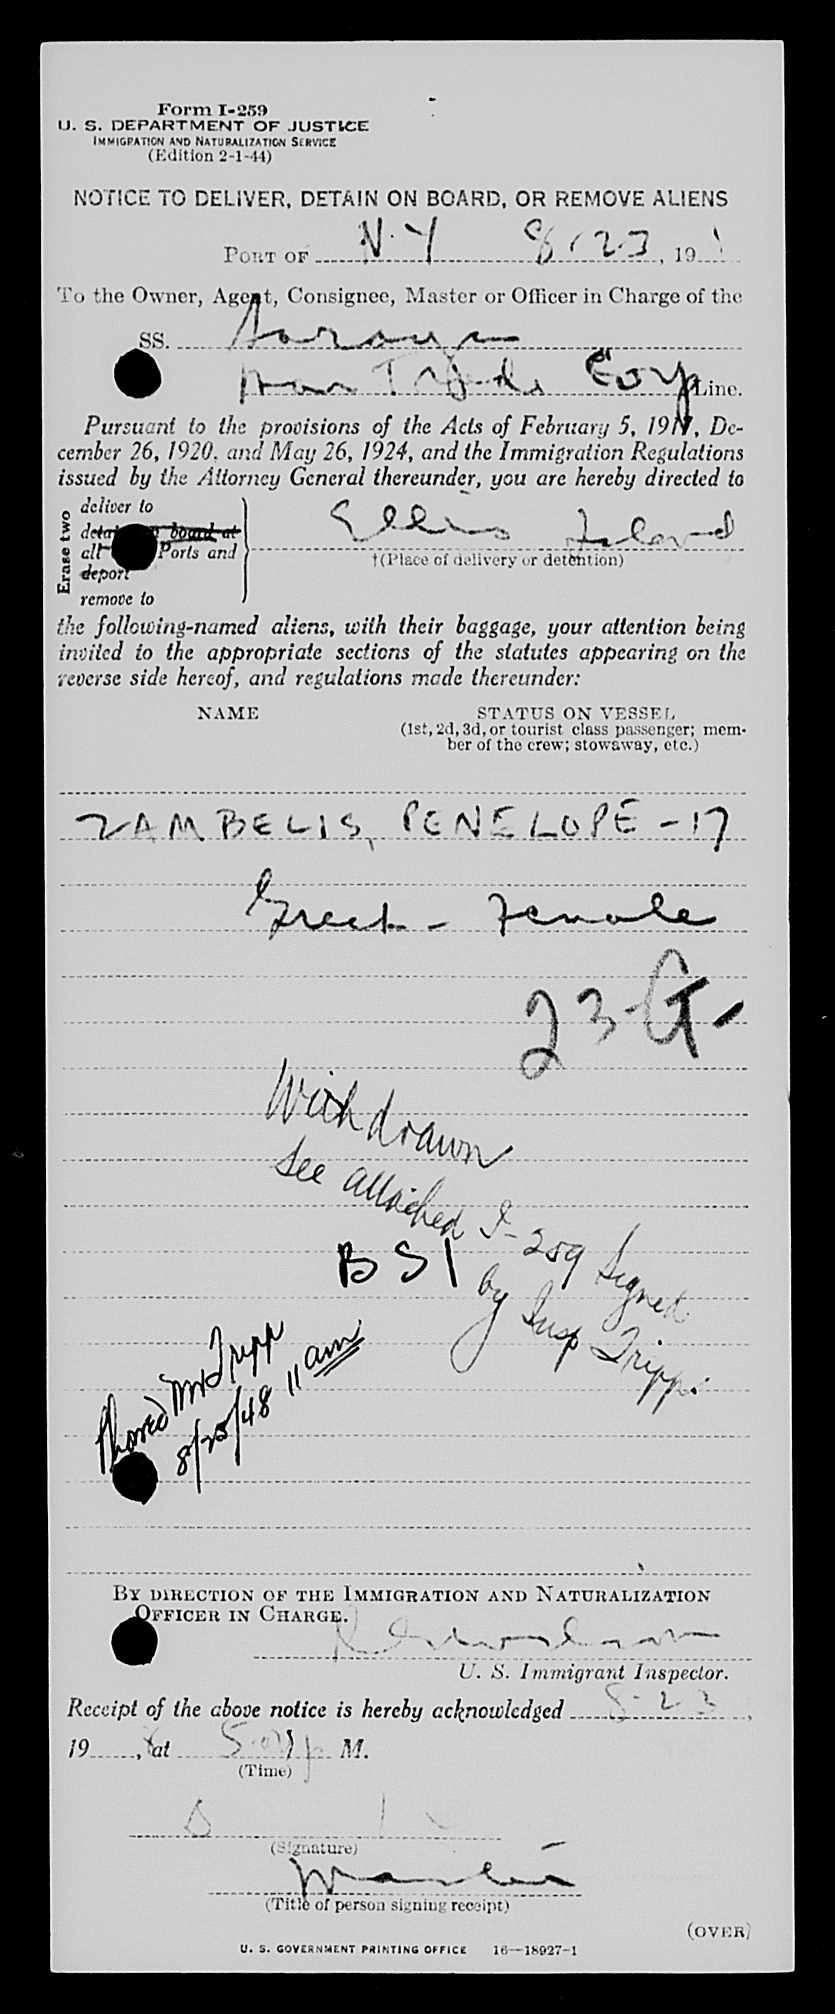 Form I-259
U. S. DEPARTMENT OF JUSTICE
IMMIGRATION AND NATURALIZATION SERVICE
(Edition 2-1-44)
NOTICE TO DELIVER, DETAIN ON BOARD, OR REMOVE ALIENS
PORT OF N.Y 8/23, 19
To the Owner, Agent, Consignee, Master or Officer in Charge of the
SS.
Line.
Pursuant to the provisions of the Acts of February 5, 1917, De-
cember 26, 1920, and May 26, 1924, and the Immigration Regulations
issued by the Attorney General thereunder, you are hereby directed to
Erase two
deliver to
detain on board at
all Ports and
deport
remove to
Ellis Island
†(Place of delivery or detention)
the following-named aliens, with their baggage, your attention being
invited to the appropriate sections of the statutes appearing on the
reverse side hereof, and regulations made thereunder:
NAME STATUS ON VESSEL
(1st, 2d, 3d, or tourist class passenger; mem-
ber of the crew; stowaway, etc.)
ZAMBELIS, PENELOPE - 17
Greek - Female
23-G-
Withdrawn
See attached I-259 Signed
by Insp Trippi
BSI
Phoned Mr Tripp
8/25/48 11 am
BY DIRECTION OF THE IMMIGRATION AND NATURALIZATION
OFFICER IN CHARGE.
U. S. Immigrant Inspector.
Receipt of the above notice is hereby acknowledged 8-23,
19 8, at M.
(Time)
(Signature)
(Title of person signing receipt)
(OVER)
U. S. GOVERNMENT PRINTING OFFICE 16—18927-1